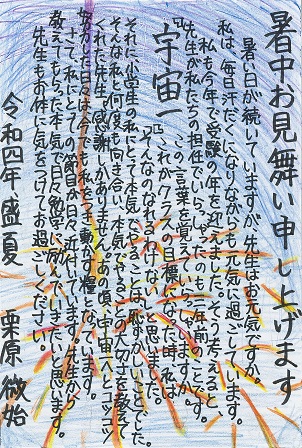 暑中お見舞い申し上げます
暑い日が続いていますが、先生はお元気ですか。
私は、毎日汗だくになりながらも元気に過ごしています。
私も今年で受験の年を迎えました。そう考えると、
先生が私たちの担任でいらっしゃったのも三年前のことです。
『宇宙一』この言葉を覚えていらっしゃいますか。
これがクラスの目標になった時、私は
そんなのなれるわけないと思いました。
それに小学生の私にとって本気でやることは恥ずかしいことでした。
そんな私と何度も向き合い、本気でやることの大切さを教えて
くれた先生に感謝しかありません。あの頃、宇宙一とコツコツ
努力した日々は今でも私をつき動かす糧となっています。
さて、私にとっての節目が日々近付いています。先生から
教えてもらった本気で日々勉学に励んでいきたいと思います。
先生もお体に気をつけてお過ごしください。
令和四年 盛夏 栗原 徴始